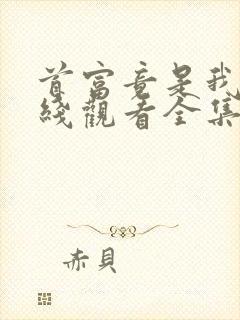 首富竟是我
綫觀看全集
赤貝